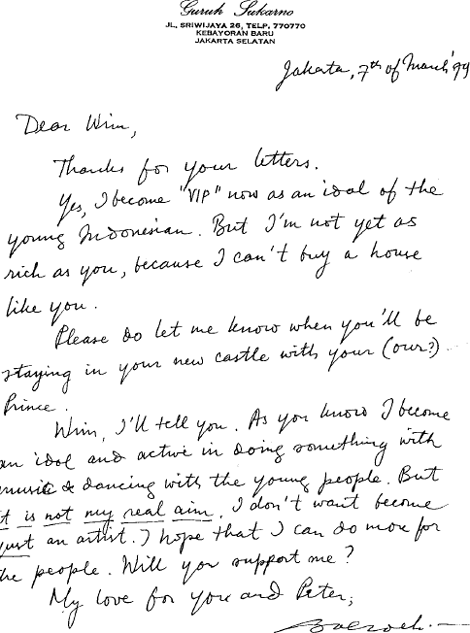 Guruh Sukarno
JL. SRIWIJAYA 26, TELP. 770770
KEBAYORAN BARU
JAKARTA SELATAN
Jakarta, 7th of March '79
Dear Wim,
Thanks for your letters.
Yes, I become "VIP" now as an idol of the
young Indonesian. But I'm not yet as
rich as you, because I can't buy a house
like you.
Please do let me know when you'll be
staying in your new castle with your (our?)
Prince.
Wim, I'll tell you. As you know I become
an idol and active in doing something with
music & dancing with the young people. But
it is not my real aim. I don't want become
just an artist. I hope that I can do more for
the people. Will you support me?
My love for you and Peter,